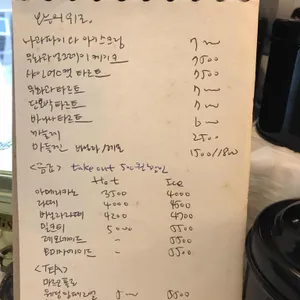 나가파이다 아이스크림 7~
무화과얼그레이케이크 7500
샤인머스캣 타르트 7500
무화과타르트 7~
단호박타르트 7~
바나나타르트 6~
까눌레 2500
마들렌 바닐라/레몬 1500/1800
<음료> take out 500원할인
Hot Ice
아메리카노 3500 4000
라떼 4000 4500
바닐라라떼 4200 4700
밀크티 5000 5500
레몬에이드 - 5500
자몽에이드 - 5500
<TEA>
5~ 5500